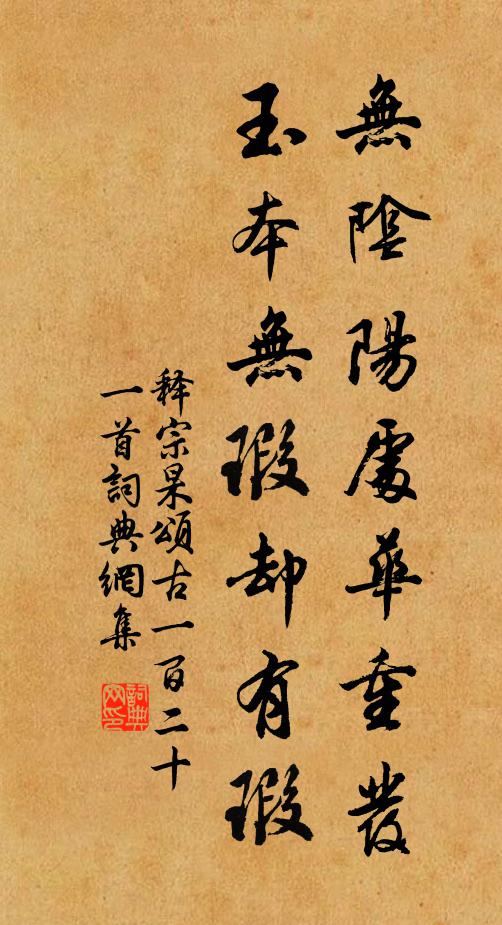 無陰陽處華重發
玉本無瑕却有瑕
释宗杲頌古一百二十
一首詞典網集
詞典
网印